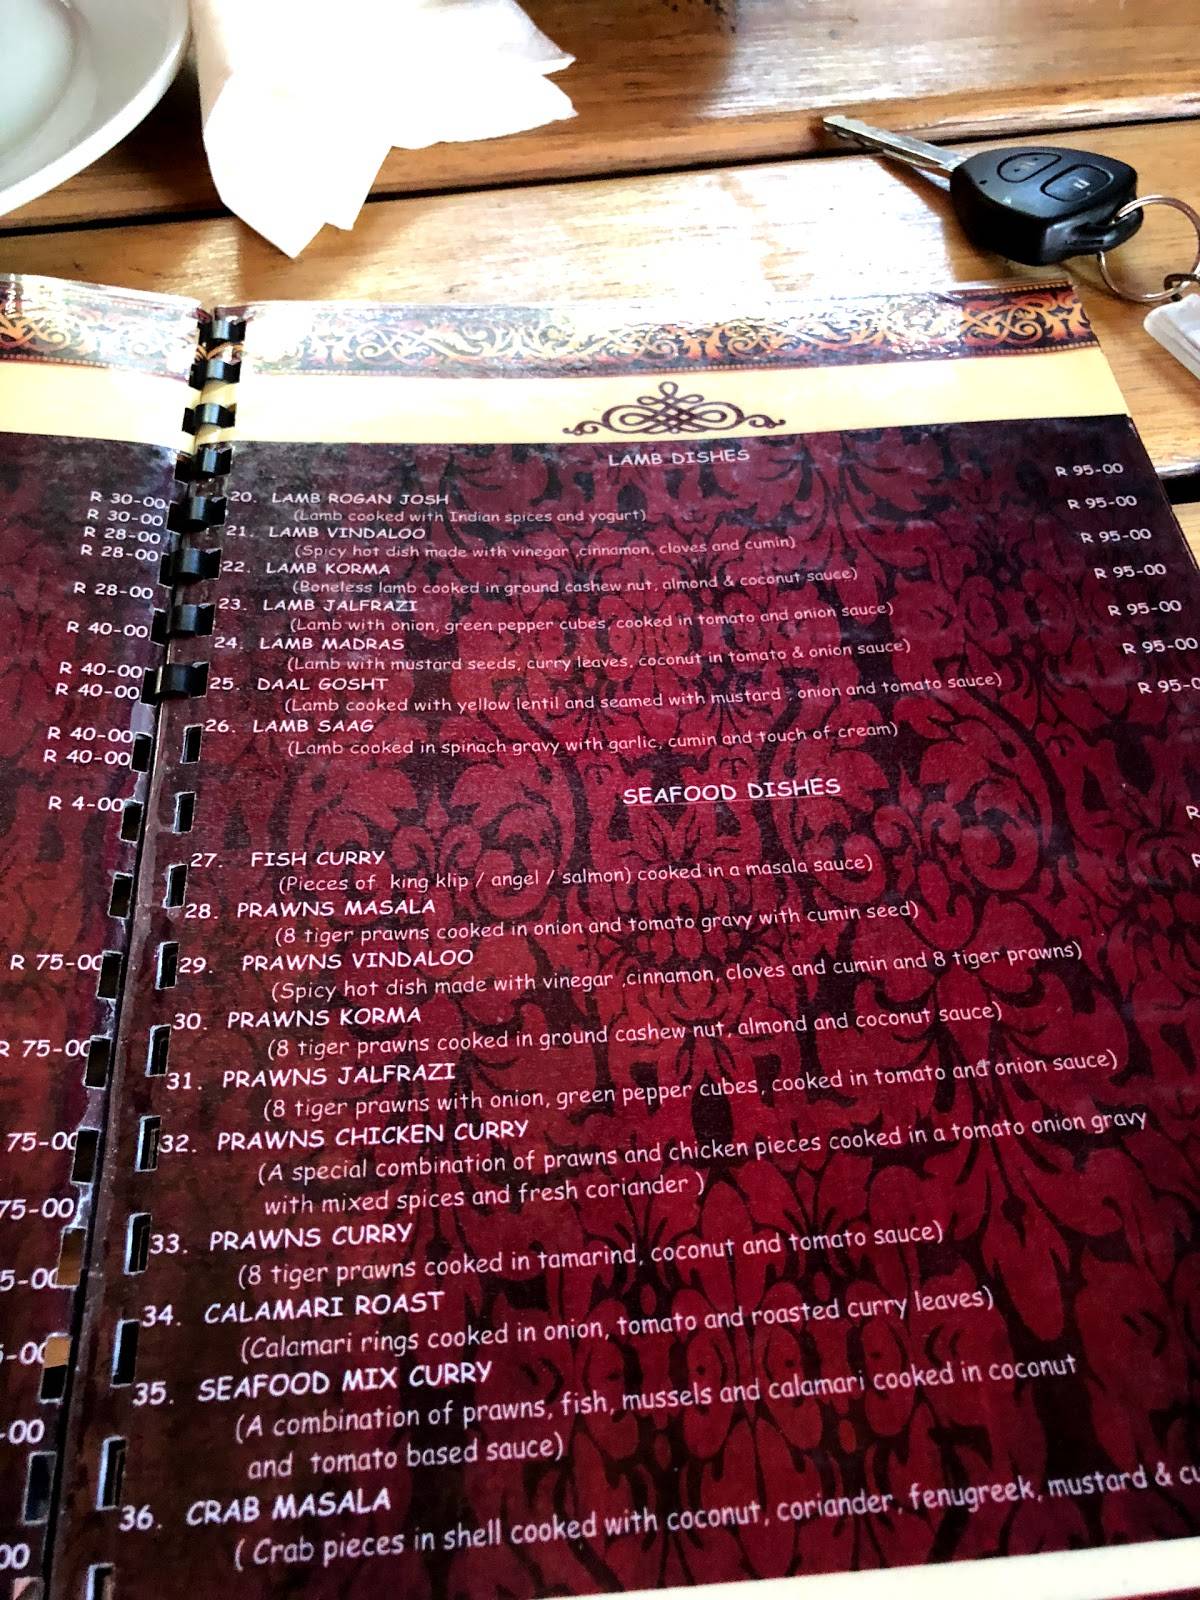 R 30-00
R 30-00
R 28-00
R 28-00
R 28-00
R 40-00
R 40-00
R 40-00
R 40-00
R 40-00
R 4-00
R 75-00
R 75-00
75-00
75-00
LAMB DISHES
20. LAMB ROGAN JOSH R 95-00
(Lamb cooked with Indian spices and yogurt)
21. LAMB VINDALOO R 95-00
(Spicy hot dish made with vinegar ,cinnamon, cloves and cumin)
22. LAMB KORMA R 95-00
(Boneless lamb cooked in ground cashew nut, almond & coconut sauce)
23. LAMB JALFRAZI R 95-00
(Lamb with onion, green pepper cubes, cooked in tomato and onion sauce)
24. LAMB MADRAS R 95-00
(Lamb with mustard seeds, curry leaves, coconut in tomato & onion sauce)
25. DAAL GOSHT R 95-00
(Lamb cooked with yellow lentil and seamed with mustard , onion and tomato sauce)
26. LAMB SAAG R 95-0
(Lamb cooked in spinach gravy with garlic, cumin and touch of cream)
SEAFOOD DISHES
27. FISH CURRY
(Pieces of king klip / angel / salmon) cooked in a masala sauce)
28. PRAWNS MASALA
(8 tiger prawns cooked in onion and tomato gravy with cumin seed)
29. PRAWNS VINDALOO
(Spicy hot dish made with vinegar ,cinnamon, cloves and cumin and 8 tiger prawns)
30. PRAWNS KORMA
(8 tiger prawns cooked in ground cashew nut, almond and coconut sauce)
31. PRAWNS JALFRAZI
(8 tiger prawns with onion, green pepper cubes, cooked in tomato and onion sauce)
32. PRAWNS CHICKEN CURRY
(A special combination of prawns and chicken pieces cooked in a tomato onion gravy
with mixed spices and fresh coriander )
33. PRAWNS CURRY
(8 tiger prawns cooked in tamarind, coconut and tomato sauce)
34. CALAMARI ROAST
(Calamari rings cooked in onion, tomato and roasted curry leaves)
35. SEAFOOD MIX CURRY
(A combination of prawns, fish, mussels and calamari cooked in coconut
and tomato based sauce)
36. CRAB MASALA
( Crab pieces in shell cooked with coconut, coriander, fenugreek, mustard &